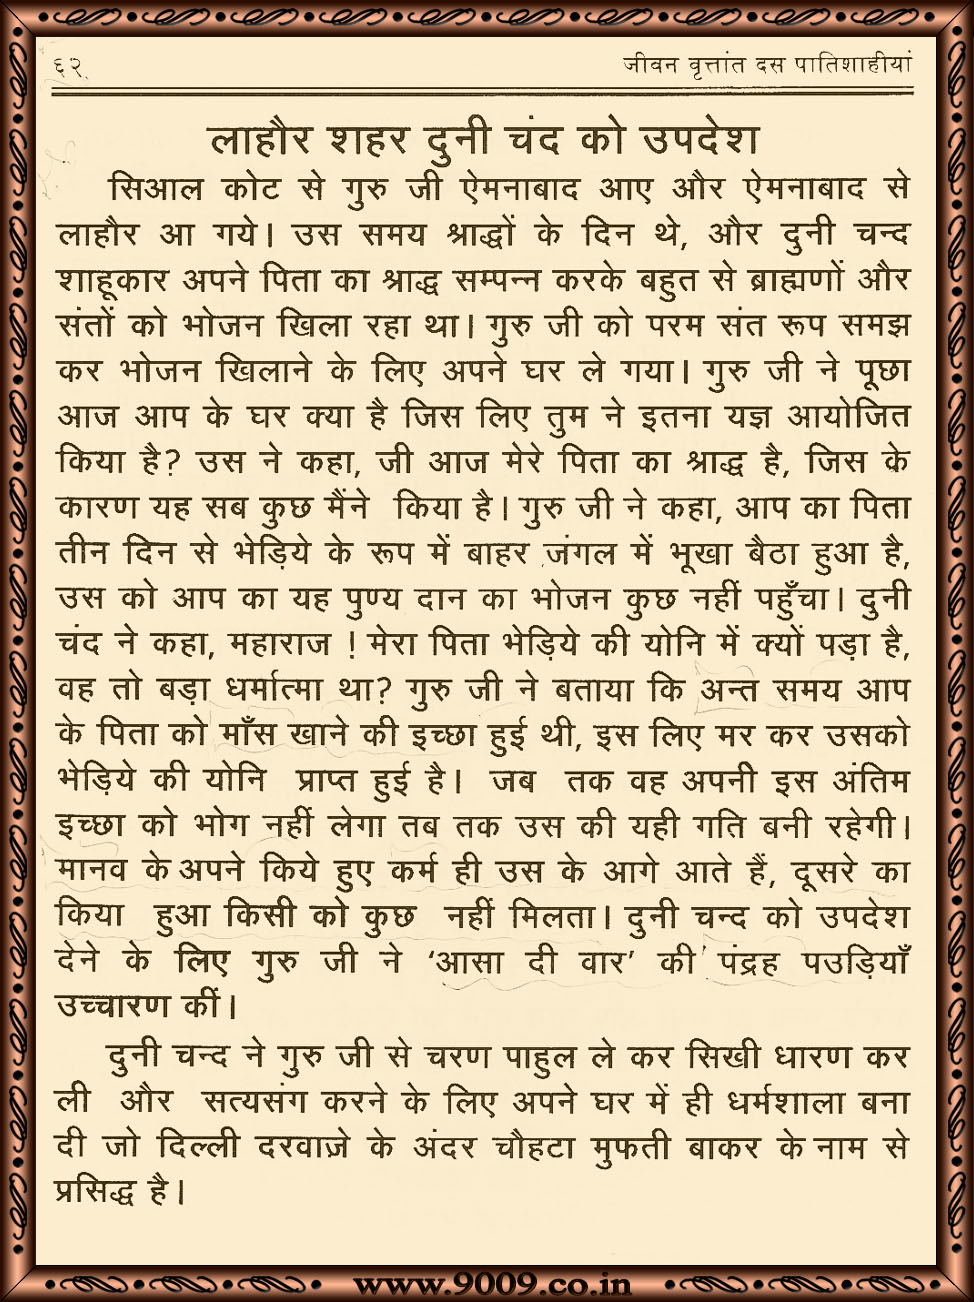 ६२
जीवन वृत्तांत दस पातिशाहीयां
लाहौर शहर दुनी चंद को उपदेश
सिआल कोट से गुरु जी ऐमनाबाद आए और ऐमनाबाद से
लाहौर आ गये। उस समय श्राद्धों के दिन थे, और दुनी चन्द
शाहूकार अपने पिता का श्राद्ध सम्पन्न करके बहुत से ब्राह्मणों और
संतों को भोजन खिला रहा था। गुरु जी को परम संत रूप समझ
कर भोजन खिलाने के लिए अपने घर ले गया। गुरु जी ने पूछा
आज आप के घर क्या है जिस लिए तुम ने इतना यज्ञ आयोजित
किया है? उस ने कहा, जी आज मेरे पिता का श्राद्ध है, जिस के
कारण यह सब कुछ मैंने किया है। गुरु जी ने कहा, आप का पिता
तीन दिन से भेड़िये के रूप में बाहर जंगल में भूखा बैठा हुआ है,
उस को आप का यह पुण्य दान का भोजन कुछ नहीं पहुँचा। दुनी
चंद ने कहा, महाराज ! मेरा पिता भेड़िये की योनि में क्यों पड़ा है,
वह तो बड़ा धर्मात्मा था? गुरु जी ने बताया कि अन्त समय आप
के पिता को माँस खाने की इच्छा हुई थी, इस लिए मर कर उसको
भेड़िये की योनि प्राप्त हुई है। जब तक वह अपनी इस अंतिम
इच्छा को भोग नहीं लेगा तब तक उस की यही गति बनी रहेगी।
मानव के अपने किये हुए कर्म ही उस के आगे आते हैं, दूसरे का
किया हुआ किसी को कुछ नहीं मिलता। दुनी चन्द को उपदेश
देने के लिए गुरु जी ने ‘आसा दी वार’ की पंद्रह पउड़ियाँ
उच्चारण कीं।
दुनी चन्द ने गुरु जी से चरण पाहुल ले कर सिखी धारण कर
ली और सत्यसंग करने के लिए अपने घर में ही धर्मशाला बना
दी जो दिल्ली दरवाज़े के अंदर चौहटा मुफती बाकर के नाम से
प्रसिद्ध है।
www.9009.co.in